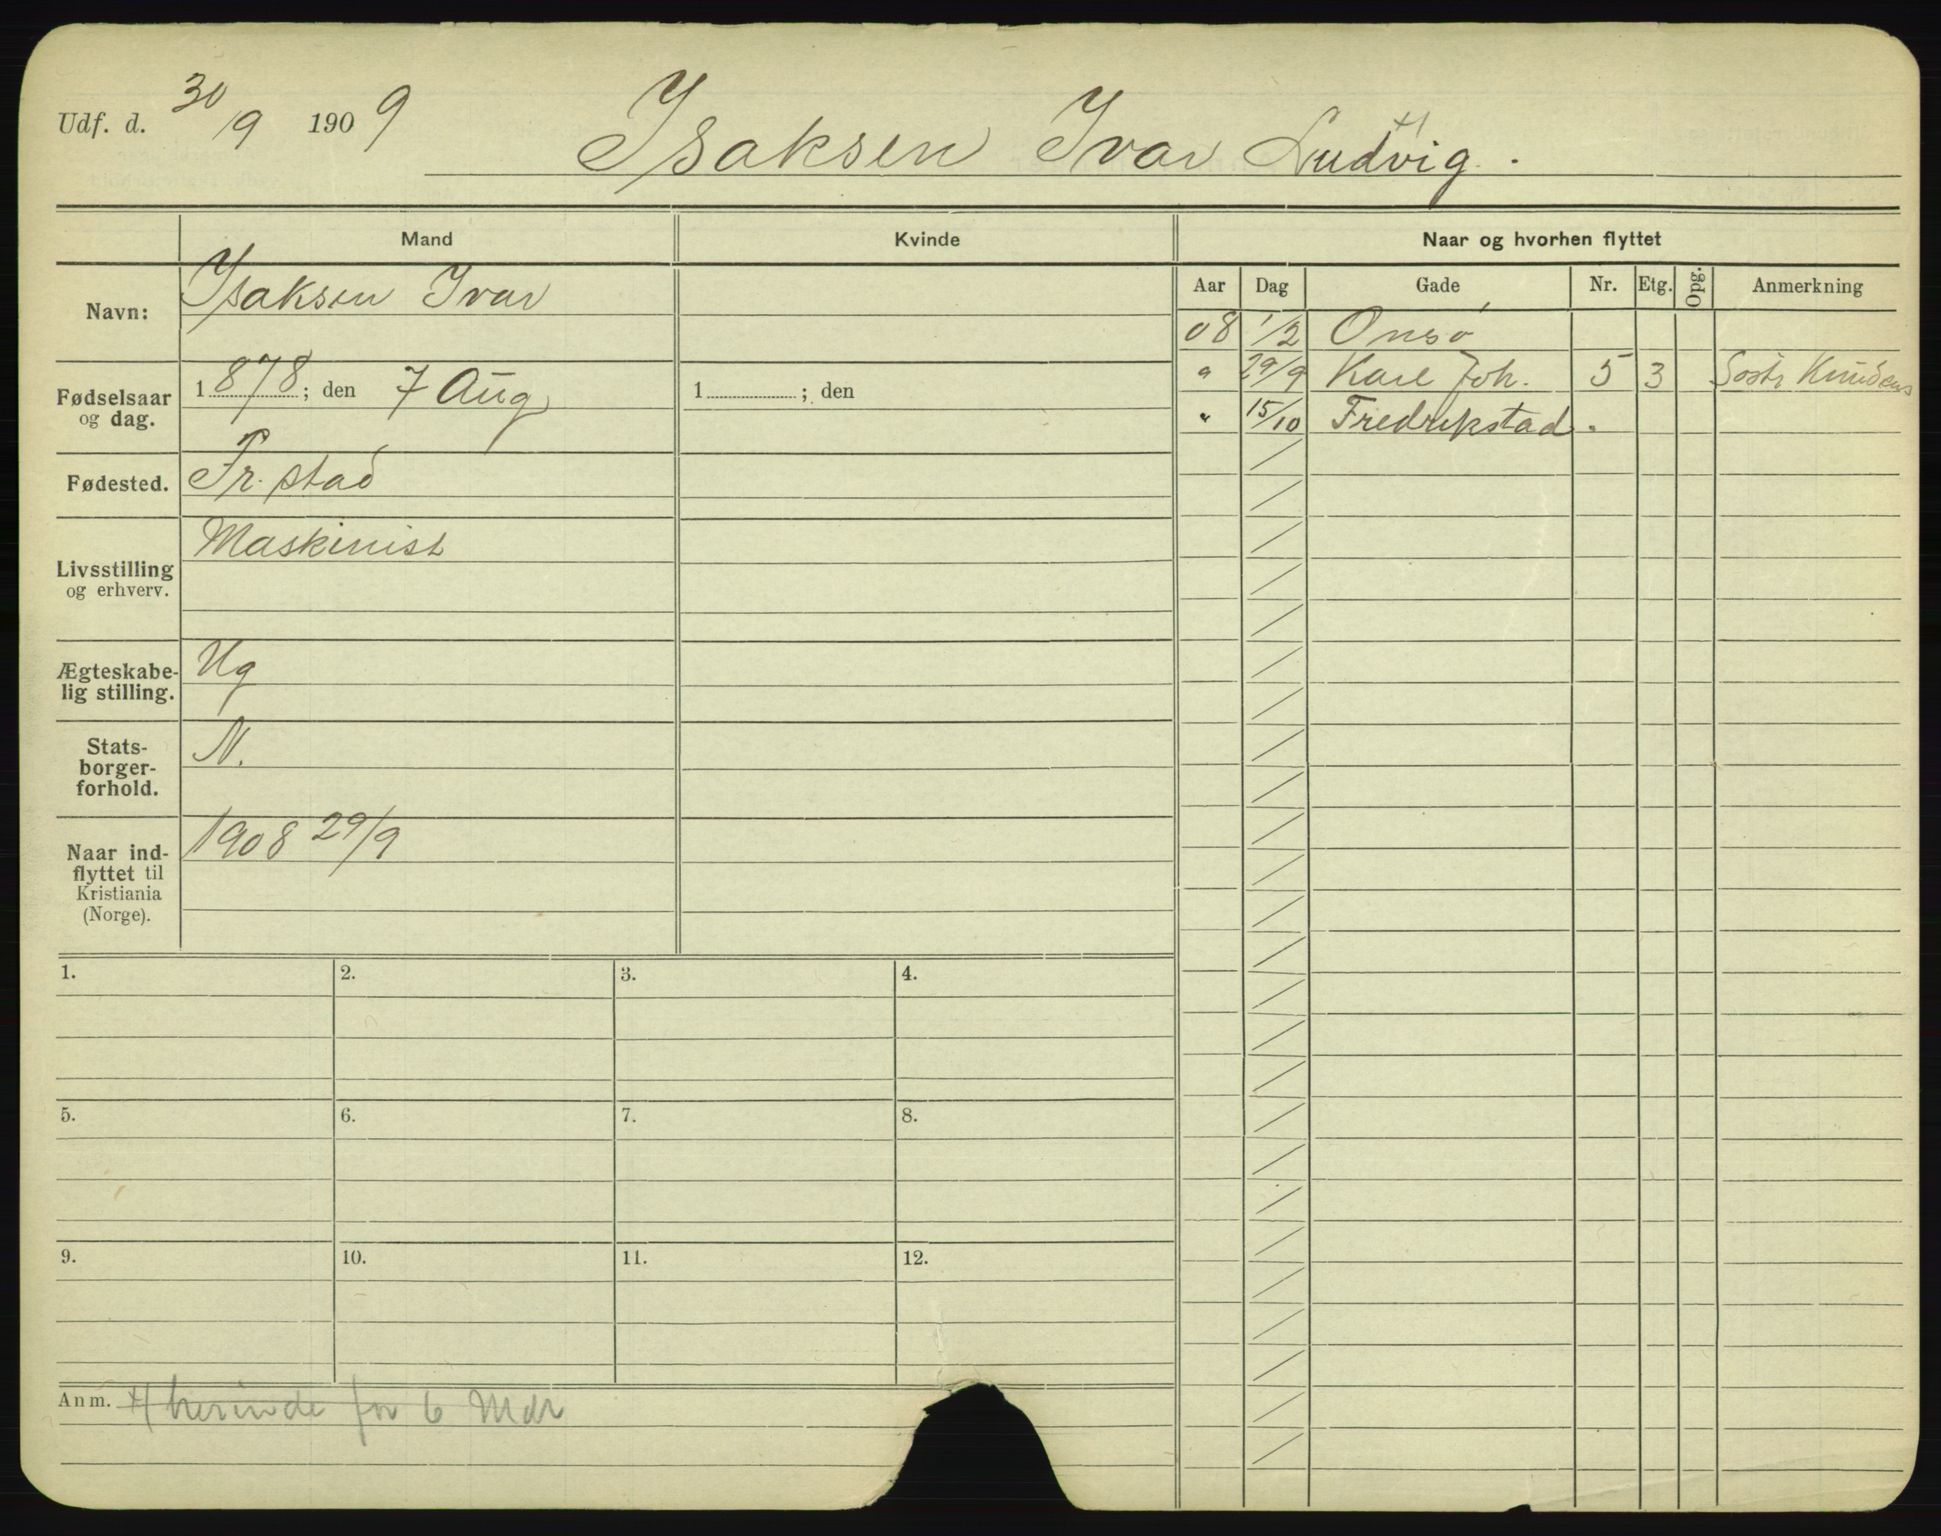 Udf. d. 30/9 1909
Isaksen Ivar Ludvig.
Mand Kvinde Naar og hvorhen flyttet
Aar Dag Gade Nr. Etg. Opg. Anmerkning
Navn: Isaksen Ivar
Fødselsaar og dag. 1878; den 7 Aug 1 ; den
Fødested. Fr.stad
Livsstilling og erhverv. Maskinist
Ægteskabe-
lig stilling. Ug
Stats-
borger-
forhold. N.
Naar ind-
flyttet til
Kristiania
(Norge). 1908 29/9
08 1/2 Onsø
" 29/9 Karl Joh. 5 3 Søstr Knudsens
" 15/10 Fredrikstad.
1. 2. 3. 4.
5. 6. 7. 8.
9. 10. 11. 12.
Anm. +) herinde for 6 Mdr